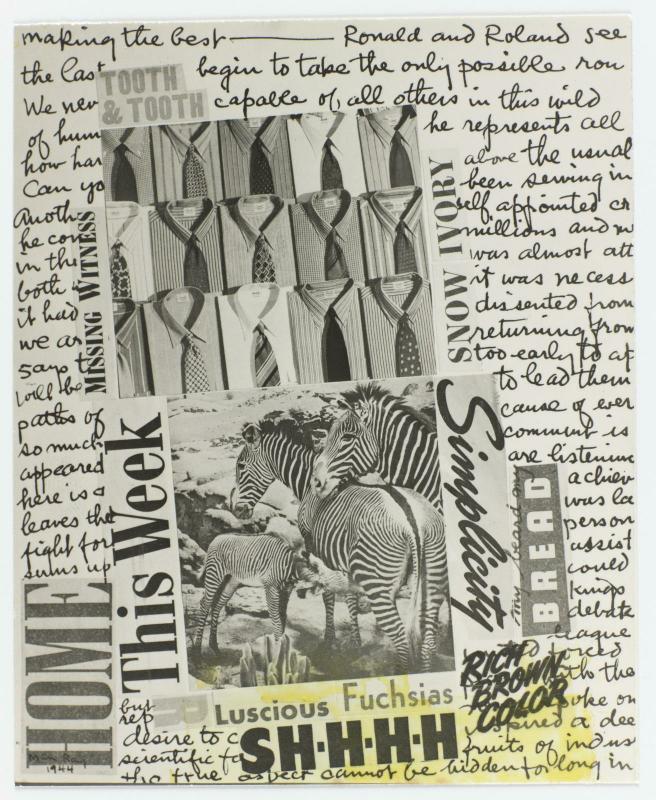 making the best — Ronald and Roland see
the last begin to take the only possible rou
We nev capable of, all others in this wild
of hum he represents all
how har above the usual
Can yo been serving in
Anoth self appointed cr
he con millions and
in the was almost att
both it was necess
it had dissented from
we ar returning from
says t too early to ap
will be to lead them
paths of cause of ever
so much comment is
appeared are listening
here is a achiev
leaves the was la
fight for person
sums up assist
could
kings
debate
league
forced
with the
oke on
a dee
but
rep
desire to c
scientific fa fruits of indus
the true aspect cannot be hidden for long in
TOOTH
& TOOTH
MISSING WITNESS
SNOW IVORY
This Week
Simplicity
my beard
BREAD
HOME
RICH
BROWN
COLOR
Luscious Fuchsias
SH·H·H·H
Man Ray
1944